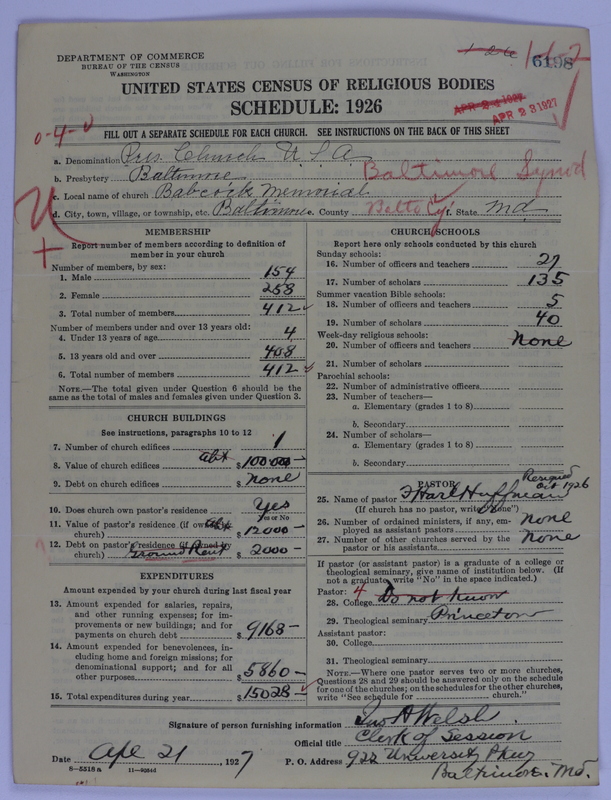 DEPARTMENT OF COMMERCE
BUREAU OF THE CENSUS
WASHINGTON
6198
UNITED STATES CENSUS OF RELIGIOUS BODIES
SCHEDULE: 1926
APR 21 1927
APR 23 1927
0-4-0
FILL OUT A SEPARATE SCHEDULE FOR EACH CHURCH. SEE INSTRUCTIONS ON THE BACK OF THIS SHEET
a. Denomination Pres. Church U S A
b. Presbytery Baltimore Baltimore Synod
c. Local name of church Babcock Memorial
d. City, town, village, or township, etc. Baltimore e. County Balto Cy f. State Md.
MEMBERSHIP
Report number of members according to definition of member in your church
Number of members, by sex:
1. Male 154
2. Female 258
3. Total number of members 412
Number of members under and over 13 years old:
4. Under 13 years of age 4
5. 13 years old and over 408
6. Total number of members 412
NOTE.—The total given under Question 6 should be the
same as the total of males and females given under Question 3.
CHURCH BUILDINGS
See instructions, paragraphs 10 to 12
7. Number of church edifices 1
8. Value of church edifices abt $100000—
9. Debt on church edifices $ None
10. Does church own pastor's residence Yes
Yes or No
11. Value of pastor's residence (if owned by abt
church) $12000—
12. Debt on pastor's residence (if owned by
church) Ground Rent $2000—
EXPENDITURES
Amount expended by your church during last fiscal year
13. Amount expended for salaries, repairs,
and other running expenses; for im-
provements or new buildings; and for
payments on church debt $9168—
14. Amount expended for benevolences, in-
cluding home and foreign missions; for
denominational support; and for all
other purposes $5860—
15. Total expenditures during year $15028—
CHURCH SCHOOLS
Report here only schools conducted by this church
Sunday schools:
16. Number of officers and teachers 27
17. Number of scholars 135
Summer vacation Bible schools:
18. Number of officers and teachers 5
19. Number of scholars 40
Week-day religious schools:
20. Number of officers and teachers None
21. Number of scholars
Parochial schools:
22. Number of administrative officers
23. Number of teachers—
a. Elementary (grades 1 to 8)
b. Secondary
24. Number of scholars—
a. Elementary (grades 1 to 8)
b. Secondary
PASTOR
Resigned
Oct 1926
25. Name of pastor Huffman
(If church has no pastor, write "None")
26. Number of ordained ministers, if any, em-
ployed as assistant pastors None
27. Number of other churches served by the
pastor or his assistants None
If pastor (or assistant pastor) is a graduate of a college or
theological seminary, give name of institution below. (If
not a graduate, write "No" in the space indicated.)
Pastor: 4
28. College Do not know
29. Theological seminary Princeton
Assistant pastor:
30. College
31. Theological seminary
NOTE.—Where one pastor serves two or more churches,
Questions 28 and 29 should be answered only on the schedule
for one of the churches; on the schedules for the other churches,
write "See schedule for church."
Signature of person furnishing information Jas A Welsh.
Official title Clerk of Session
Date Apr 21, 1927 P. O. Address 922 University Pkwy
Baltimore. Md.
8—5518a